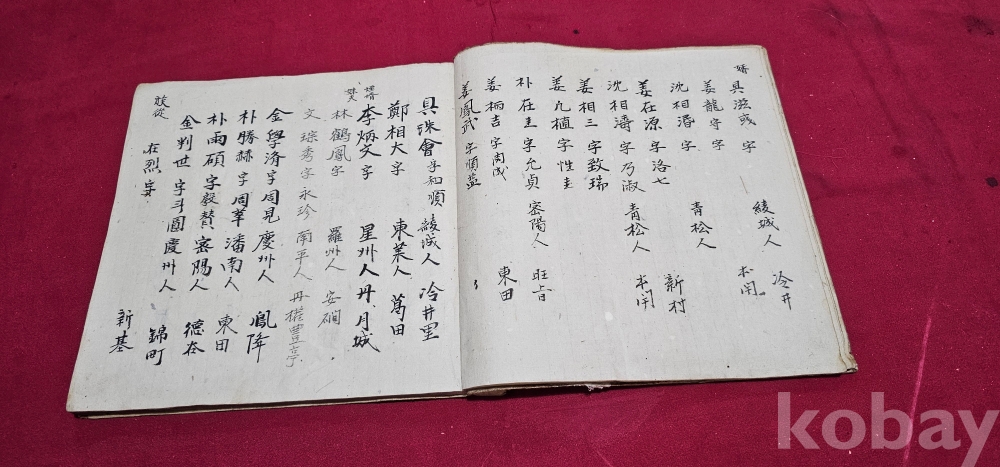 婿 具滋彧 字 綾城人 冷井
姜龍守 字 本閈
沈相 字 青松人 新村
姜在源 字洛七
沈相濤 字乃淑 青松人 本閈
姜相三 字致瑞
姜凡植 字性圭
朴在圭 字允貞 密陽人
姜炳吉 字周成 東田
姜鳳武 字順益
具珠會 字和順 綾城人 冷井里
鄭相大 字 東萊人 葛田
婿 李炳文 字 星州人 丹、月城
妹夫 林鶴鳳 字 羅州人 安磵
文琮秀 字永珍 南平人 丹 豊亭
金學濟 字周見 慶州人 鳳降
朴勝赫 字周華 潘南人 東田
朴雨碩 字毅賛 密陽人 德
金判世 字斗圓 慶州人 錦町
族從 在烈 字 新基
kobay